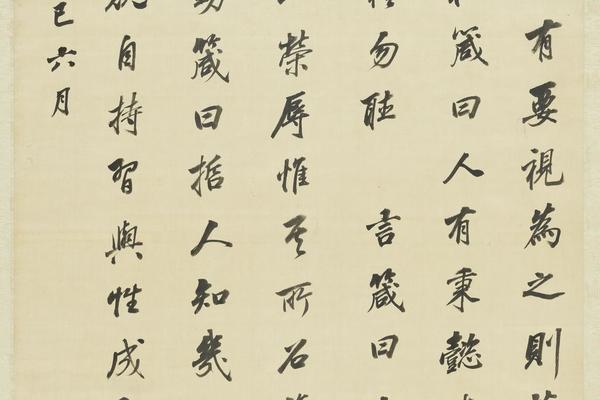 有要視為之則
箴曰人有秉懿
勿聽 言箴曰
榮辱惟其所召
箴曰哲人知幾
自持習與性成
巳六月